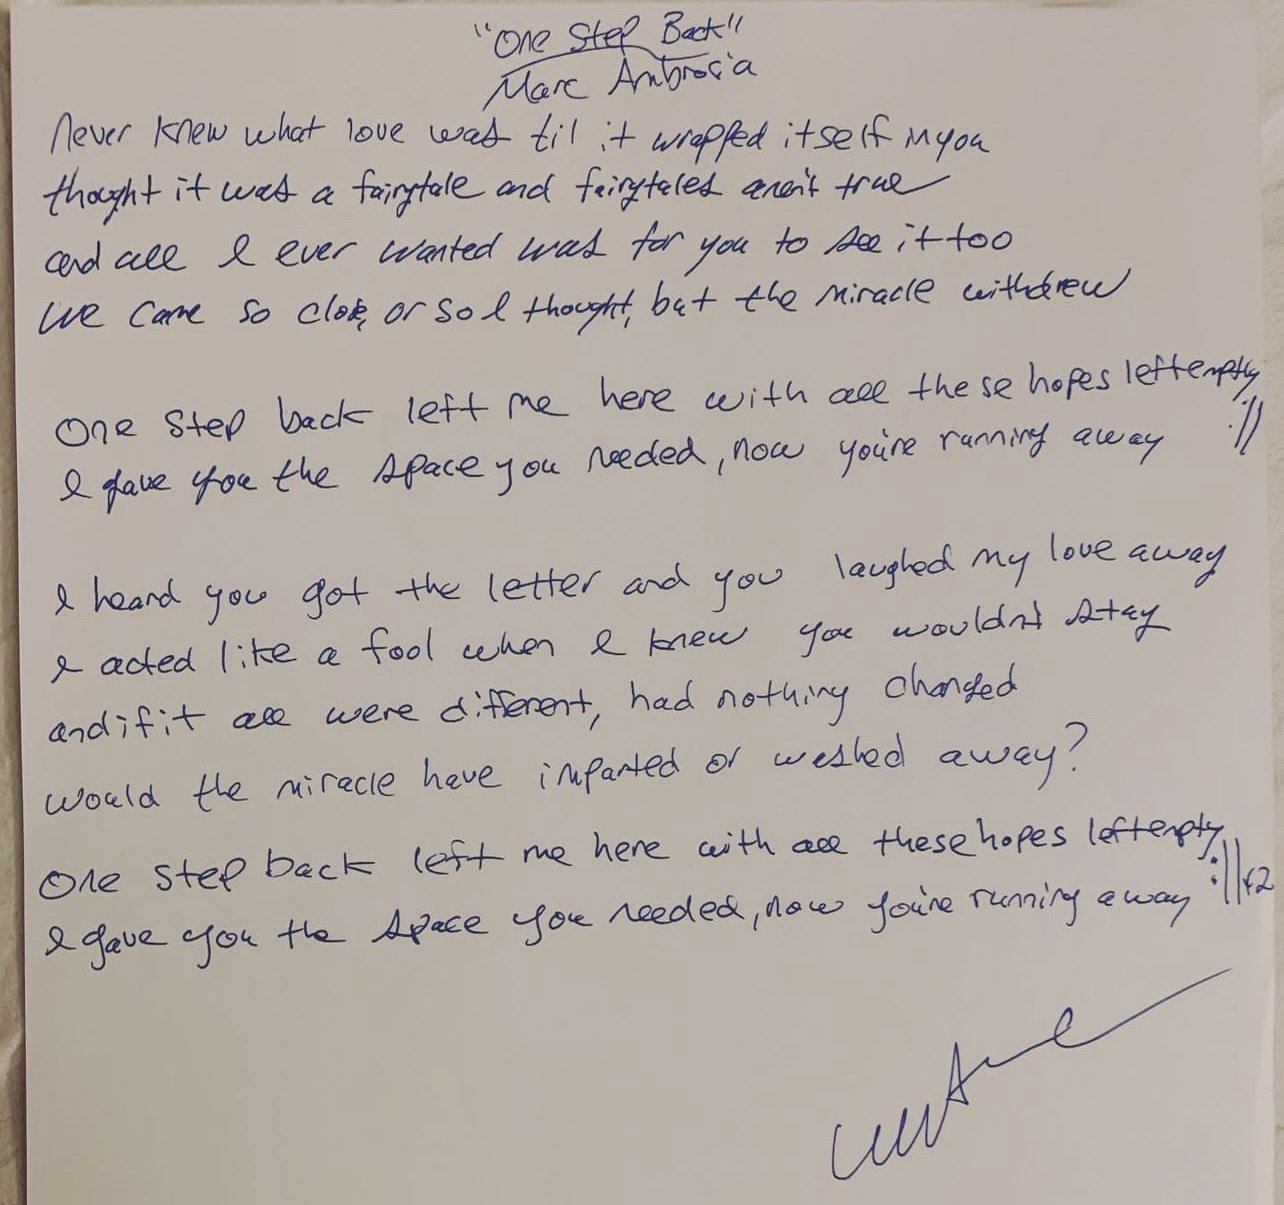 "One Step Back"
Marc Ambrosia
Never knew what love was til it wrapped itself in you
thought it was a fairytale and fairytales aren't true
and all I ever wanted was for you to see it too
We came so close, or so I thought, but the miracle withdrew
One step back left me here with all these hopes left empty
I gave you the space you needed, now you're running away :||
I heard you got the letter and you laughed my love away
I acted like a fool when I knew you wouldn't stay
and if it all were different, had nothing changed
would the miracle have imparted or washed away?
One step back left me here with all these hopes left empty
I gave you the space you needed, now you're running away :|| x2